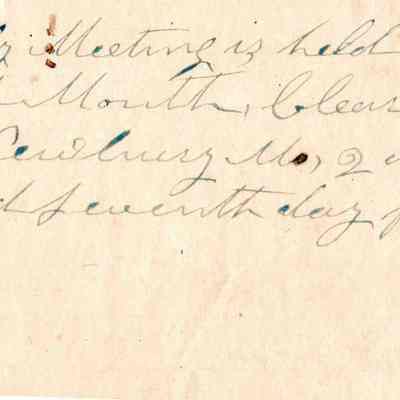 Meeting is held
Month, Clear
Newbury Mo, 2
d Seventh day